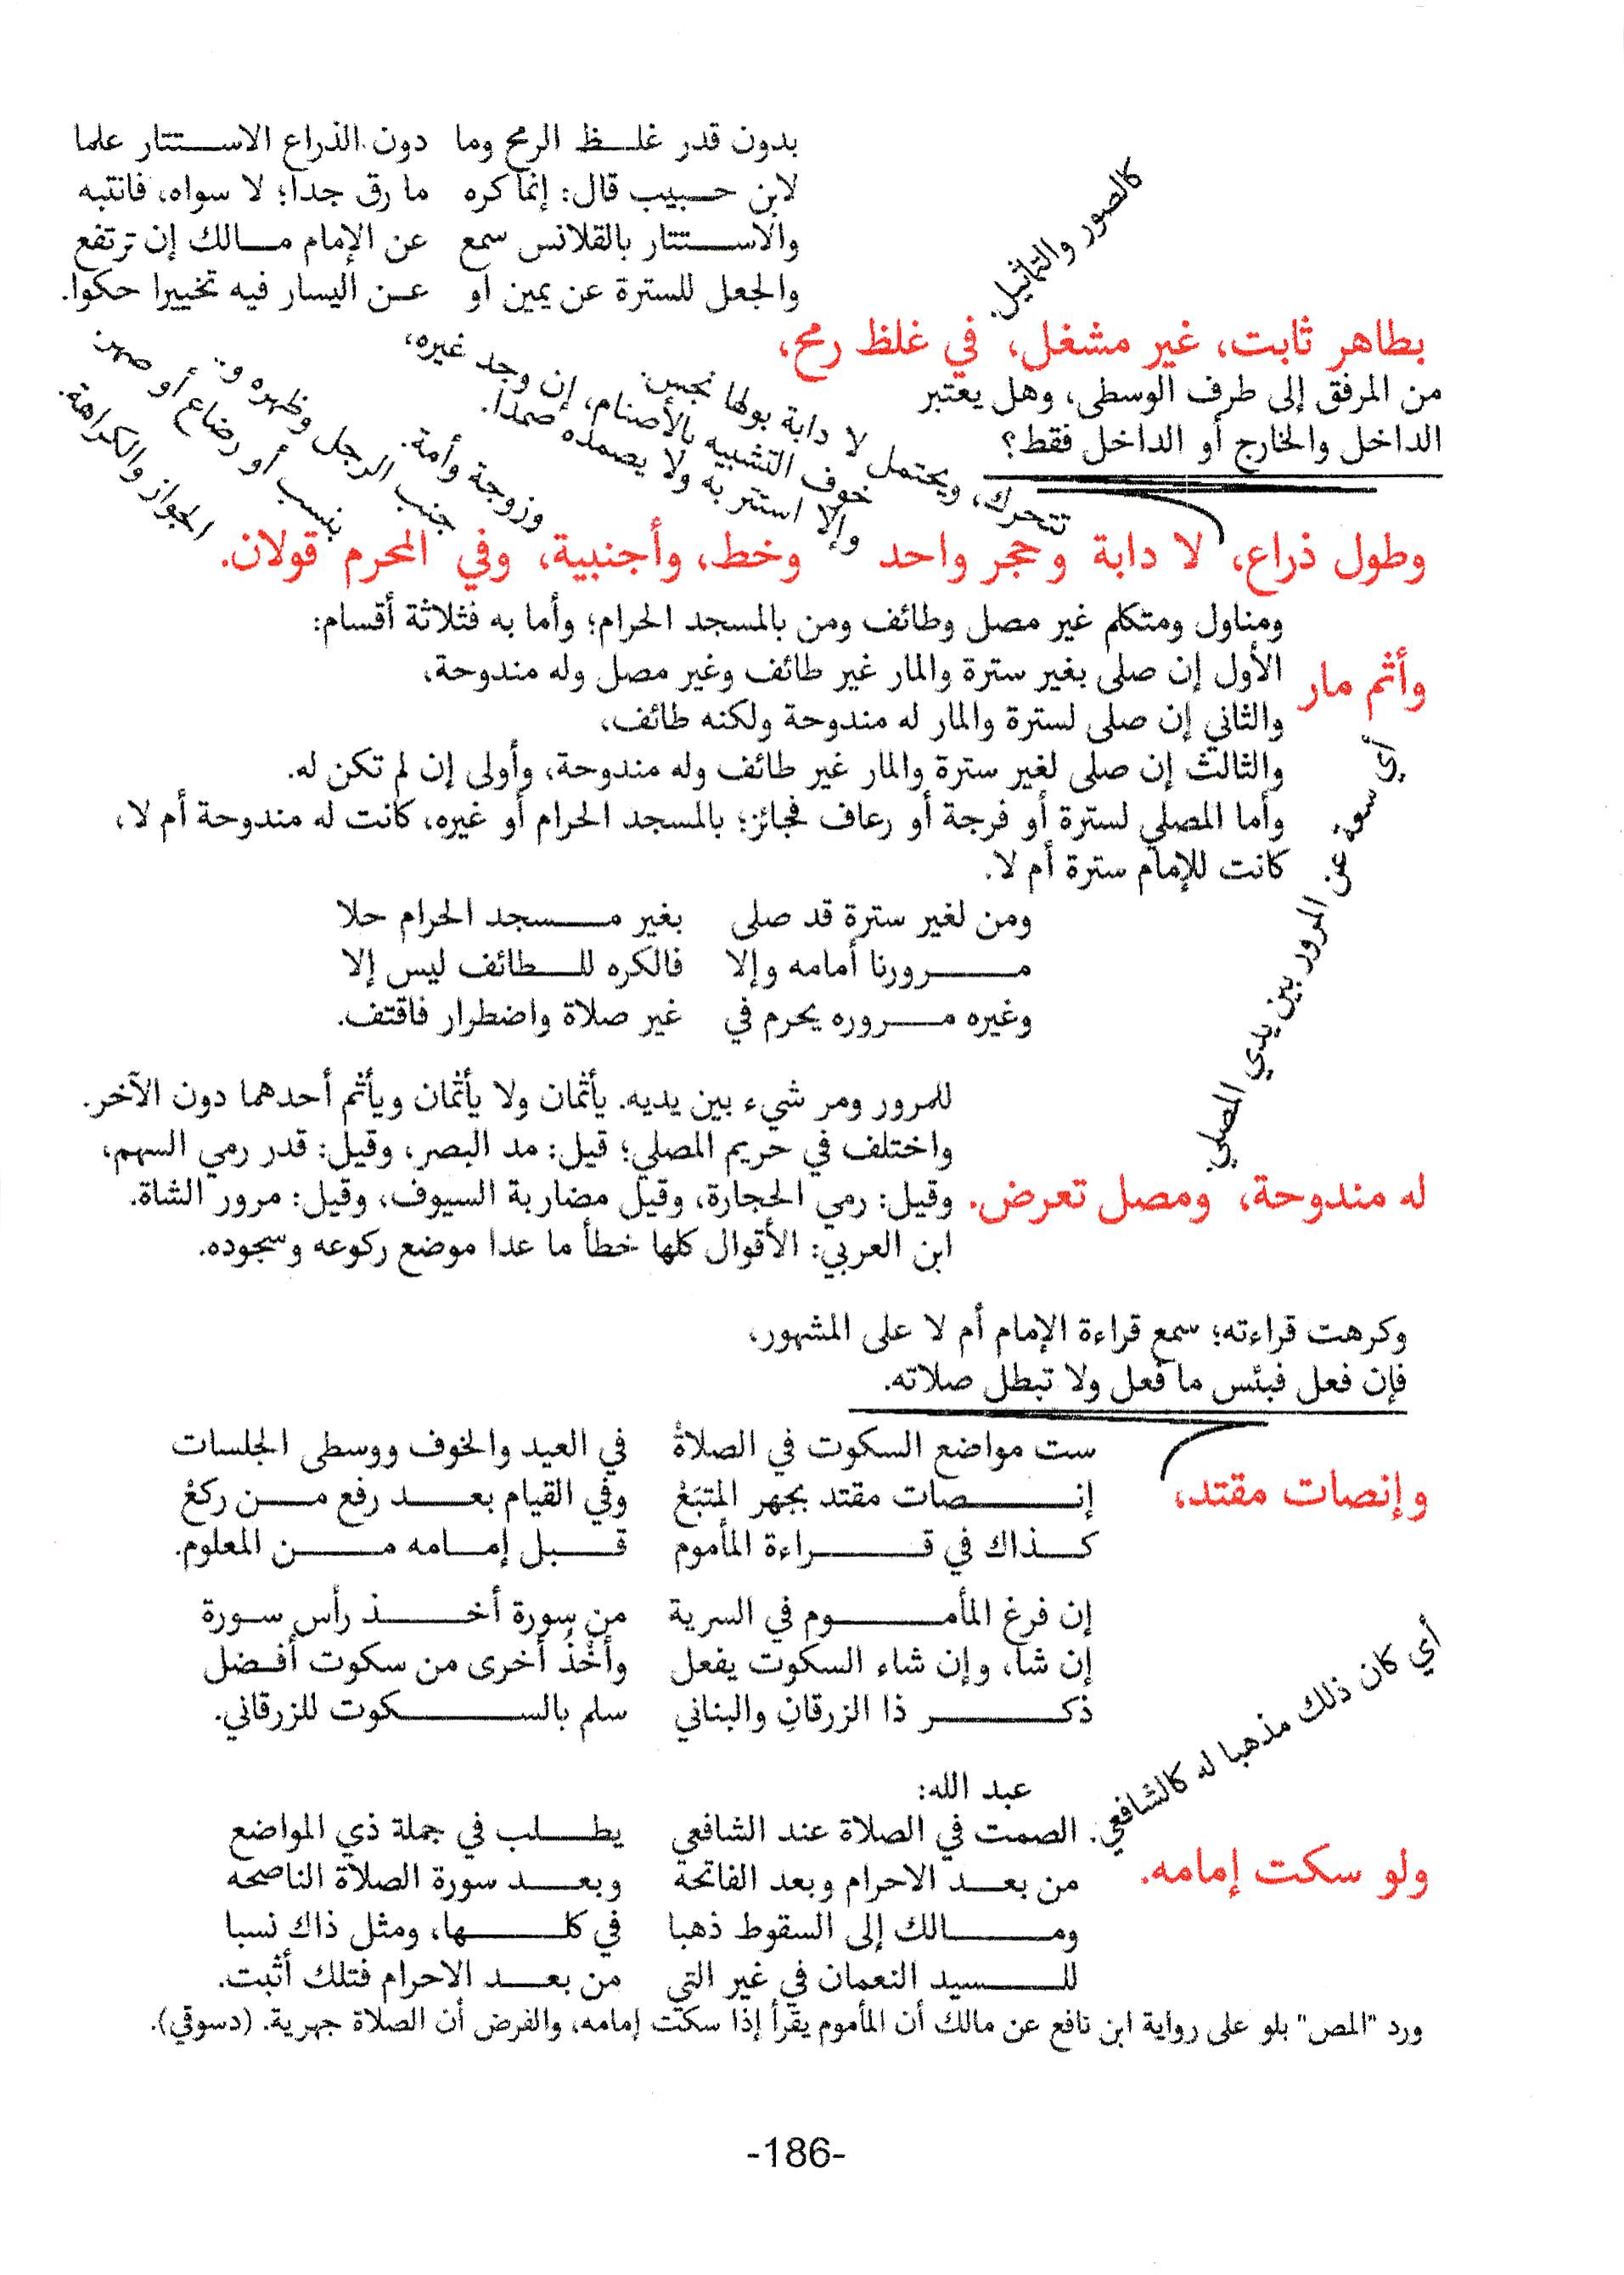 بدون قدر غلظ الرمح وما دون الذراع الاستتار علما
لابن حبيب قال: إنما كره ما رق جدا؛ لا سواه، فانتبه
والاستتار بالقلانس سمع عن الإمام مالك إن ترتفع
والجعل للسترة عن يمين او عن اليسار فيه تخييرا حكوا.
كالصور والتماثيل.
بطاهر ثابت، غير مشغل، في غلظ رمح،
من المرفق إلى طرف الوسطى، وهل يعتبر
الداخل والخارج أو الداخل فقط؟
تتحرك، ويحتمل لا دابة بولها نجس.
خوف التشبيه بالأصنام، إن وجد غيره،
وإلا استتر به ولا يصمده صمدا.
وزوجة وأمة.
جنب الرجل وظهره و.
بنسب أو رضاع أو صهر.
الجواز والكراهة.
وطول ذراع، لا دابة وحجر واحد وخط، وأجنبية، وفي المحرم قولان.
ومناول ومتكلم غير مصل وطائف ومن بالمسجد الحرام؛ وأما به فثلاثة أقسام:
الأول إن صلى بغير سترة والمار غير طائف وغير مصل وله مندوحة،
وأثم مار
والثاني إن صلى لسترة والمار له مندوحة ولكنه طائف،
والثالث إن صلى لغير سترة والمار غير طائف وله مندوحة، وأولى إن لم تكن له.
وأما المصلي لسترة أو فرجة أو رعاف فجائز؛ بالمسجد الحرام أو غيره، كانت له مندوحة أم لا،
كانت للإمام سترة أم لا.
أي سعة عن المرور بين يدي المصلي.
ومن لغير سترة قد صلى بغير مسجد الحرام حلا
مرورنا أمامه وإلا فالكره للطائف ليس إلا
وغيره مروره يحرم في غير صلاة واضطرار فاقتف.
للمرور ومر شيء بين يديه. يأثمان ولا يأثمان ويأثم أحدهما دون الآخر.
واختلف في حريم المصلي؛ قيل: مد البصر، وقيل: قدر رمي السهم،
له مندوحة، ومصل تعرض. وقيل: رمي الحجارة، وقيل مضاربة السيوف، وقيل: مرور الشاة.
ابن العربي: الأقوال كلها خطأ ما عدا موضع ركوعه وسجوده.
وكرهت قراءته؛ سمع قراءة الإمام أم لا على المشهور،
فإن فعل فبئس ما فعل ولا تبطل صلاته.
ست مواضع السكوت في الصلاة في العيد والخوف ووسطى الجلسات
وإنصات مقتد، إنصات مقتد بجهر المتبَعْ وفي القيام بعد رفع من ركعْ
كذاك في قراءة المأموم قبل إمامه من المعلوم.
إن فرغ المأموم في السرية من سورة أخذ رأس سورة
إن شا، وإن شاء السكوت يفعل وأخْذُ أخرى من سكوت أفضل
ذكر ذا الزرقانِ والبناني سلم بالسكوت للزرقاني.
أي كان ذلك مذهبا له كالشافعي.
عبد الله:
الصمت في الصلاة عند الشافعي يطلب في جملة ذي المواضع
ولو سكت إمامه. من بعد الاحرام وبعد الفاتحة وبعد سورة الصلاة الناصحه
ومالك إلى السقوط ذهبا في كلها، ومثل ذاك نسبا
للسيد النعمان في غير التي من بعد الاحرام فتلك أثبت.
ورد "المص" بلو على رواية ابن نافع عن مالك أن المأموم يقرأ إذا سكت إمامه، والفرض أن الصلاة جهرية. (دسوقي).
-186-